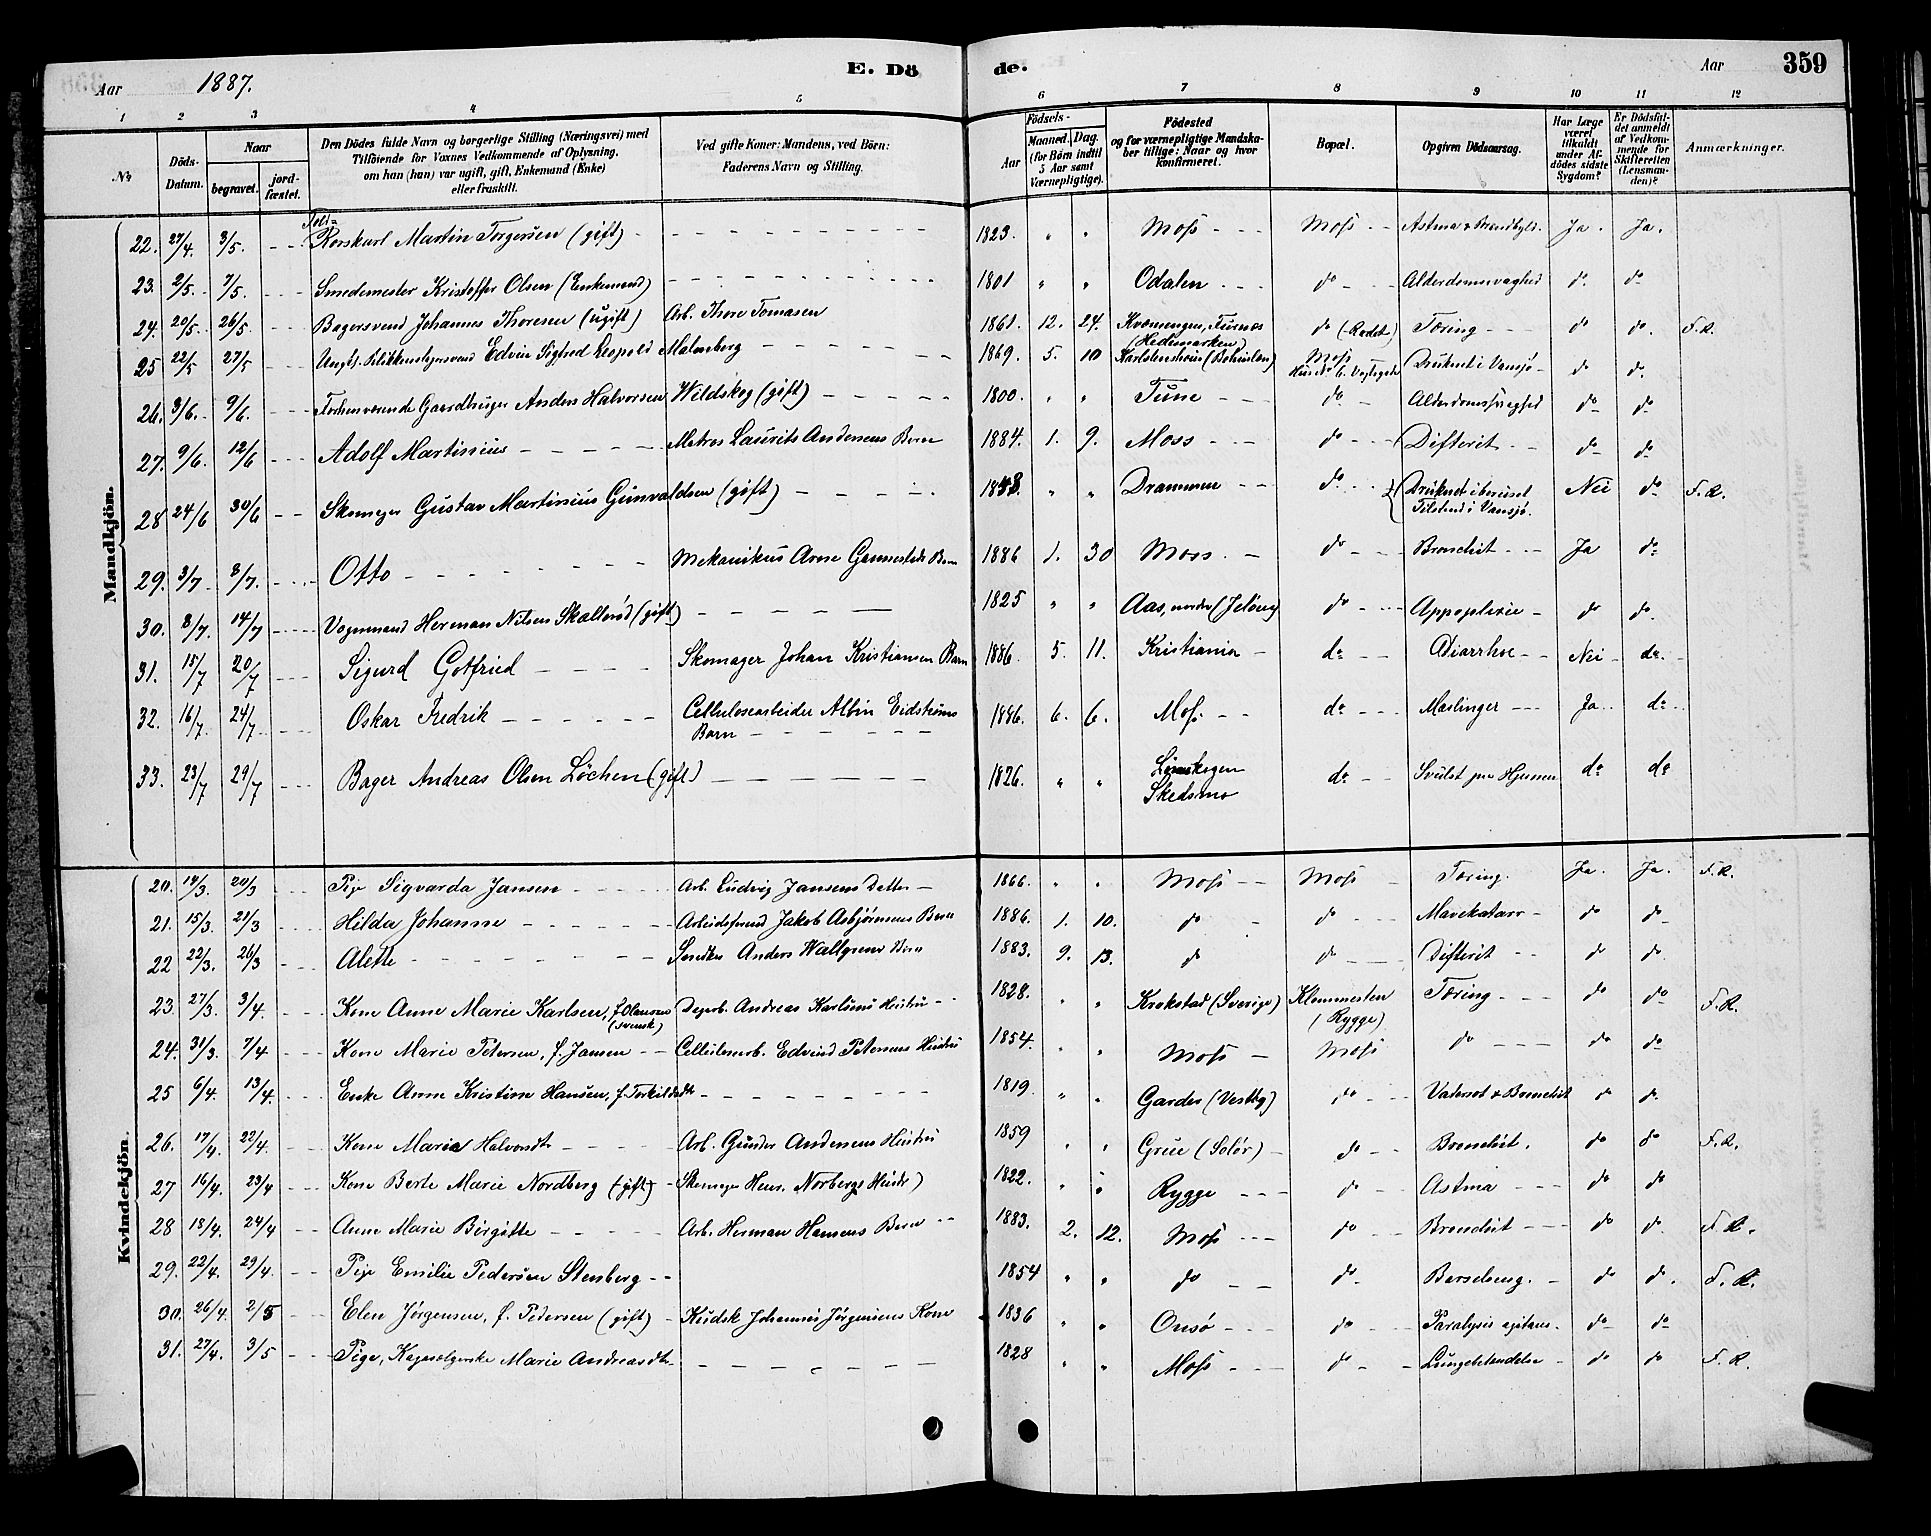 Aar 1887. E. Dö de. Aar 359
1 2 3 4 5 6 7 8 9 10 11 12
No Döds-Datum. Naar begravet. jordfæstet. Den Dödes fulde Navn og borgerlige Stilling (Næringsvei) med Tilföiende for Voxnes Vedkommende af Oplysning, om han (hun) var ugift, gift, Enkemand (Enke) eller fraskilt. Ved gifte Koner: Mandens, ved Börn: Faderens Navn og Stilling. Födsels- Aar Maaned. Dag. (for Börn indtil 5 Aar samt Værnepligtige). Födested og for værnepligtige Mandskaber tillige: Naar og hvor konfirmeret. Bopæl. Opgiven Dödsaarsag. Har Læge været tilkaldt under Afdödes sidste Sygdom? Er Dödsfaldet anmeldt af Vedkommende for Skifteretten (Lensmanden)? Anmærkninger.
Mandkjön.
22. 27/4. 3/5. Told=Rorskarl Martin Torgersen (gift) 1823. " " Moss Moss Astma & Brandbyld. Ja. Ja.
23. 2/5. 7/5. Smedemester Kristoffer Olsen (Enkemand) 1801 " " Odalen do Alderdomssvaghed do do
24. 20/5. 26/5. Bagersvend Johannes Thoresen (ugift) Arb. Thore Tomasen 1861. 12. 24. Furnes (Hedemarken) do Tæring do do. F.R.
25 22/5 27/5 Edvin Sigfred Leopold Malmberg 1869. 5. 10 Moss Druknet i Vansjø do do.
26. 3/6. 9/6. Forhenværende Gaardbruger Anders Halvorsen Wildskog (gift) 1800. " " Tune do Alderdomssvaghed do do
27. 9/6. 12/6 Adolf Martinius Matros Laurits Andersens Barn 1884. 1. 9. Moss do Difterit do do
28 24/6 30/6 Skomager Gustav Martinius Gunvaldsen (gift) " " Drammen do Druknet i beruset Tilstand i Vansjø. Nei do F.R.
29. 3/7 8/7. Otto Mekanikus Arne Barn 1886 1. 30 Moss do Bronchit Ja do
30. 8/7. 14/7 Vognmand Herman Nilsen Skallerød (gift) 1825 " " Aas, (Jeløen) do Appoplexie do do.
31. 15/7 20/7 Sigurd Gotfried Skomager Johan Kristiansen Barn 1886. 5. 11. Kristiania do Diarrhoe Nei do
32. 16/7. 24/7. Oskar Fredrik Cellulosearbeider Albin Eidstrøms Barn 1886. 6. 6. Moss do Meslinger Ja do
33. 23/7 29/7 Bager Andreas Olsen Løchen (gift) 1826. " " Skedsmo do Svulst paa Hjernen do do
Kvindekjön.
20. 14/3. 20/3 Pige Sigvarda Jansen Arb. Ludvig Jansens Datter 1866. " " Moss Moss Tæring. Ja. Ja. F.R.
21. 15/3. 21/3 Hilda Johanne Jakob Asbjørnsens Barn 1886. 1. 10. do do Mavekatarr do do
22 22/3. 26/3 Alette Anders Wallgrens Barn 1883. 9. 13. do do Difterit do do
23. 27/3. 3/4. Kone Anne Marie Karlsen, f. Olausen (svensk) Dagarb. Andreas Karlsens Hustru 1828. " " Krokstad (Sverige) (Rygge) Tæring do do F.R.
24. 31/3. 7/4 Kone Marie Petersen, f. Jansen Edvind Petersens Hustru 1854. " " Moss Moss do do do
25 6/4. 13/4. Enke Anne Kristine Hansen, f. Torkildsdtr 1819 " " Garder (Vestby) do Vatersot & Bronchit do do
26. 17/4. 22/4. Kone Maria Halvorsdtr Arb. Gunder Andersens Hustru 1859 " " Grue (Solør) do Bronchit. do do F.R.
27 16/4. 23/4 Kone Berte Marie Nordberg (gift) Skomager Henr. Norbergs Hustr) 1822. " " Rygge do Astma do do
28 18/4. 24/4 Anne Marie Birgitte Arb. Herman Hansens Barn 1883. 2. 12. Moss do Bronchit do do F.R.
29. 22/4. 29/4. Pige Emilie Pedersen Stenberg 1854 " " do do Barselseng. do do. F.R.
30. 26/4. 2/5 Elen Jørgensen, f. Pedersen (gift) Kudsk Johannes Jørgensens Kone 1836 " " Onsø do Paralysis agitans. do do
31. 27/4. 3/5 Pige, Marie Andreasdtr 1828 " " Moss do Lungebetændelse do do F.R.